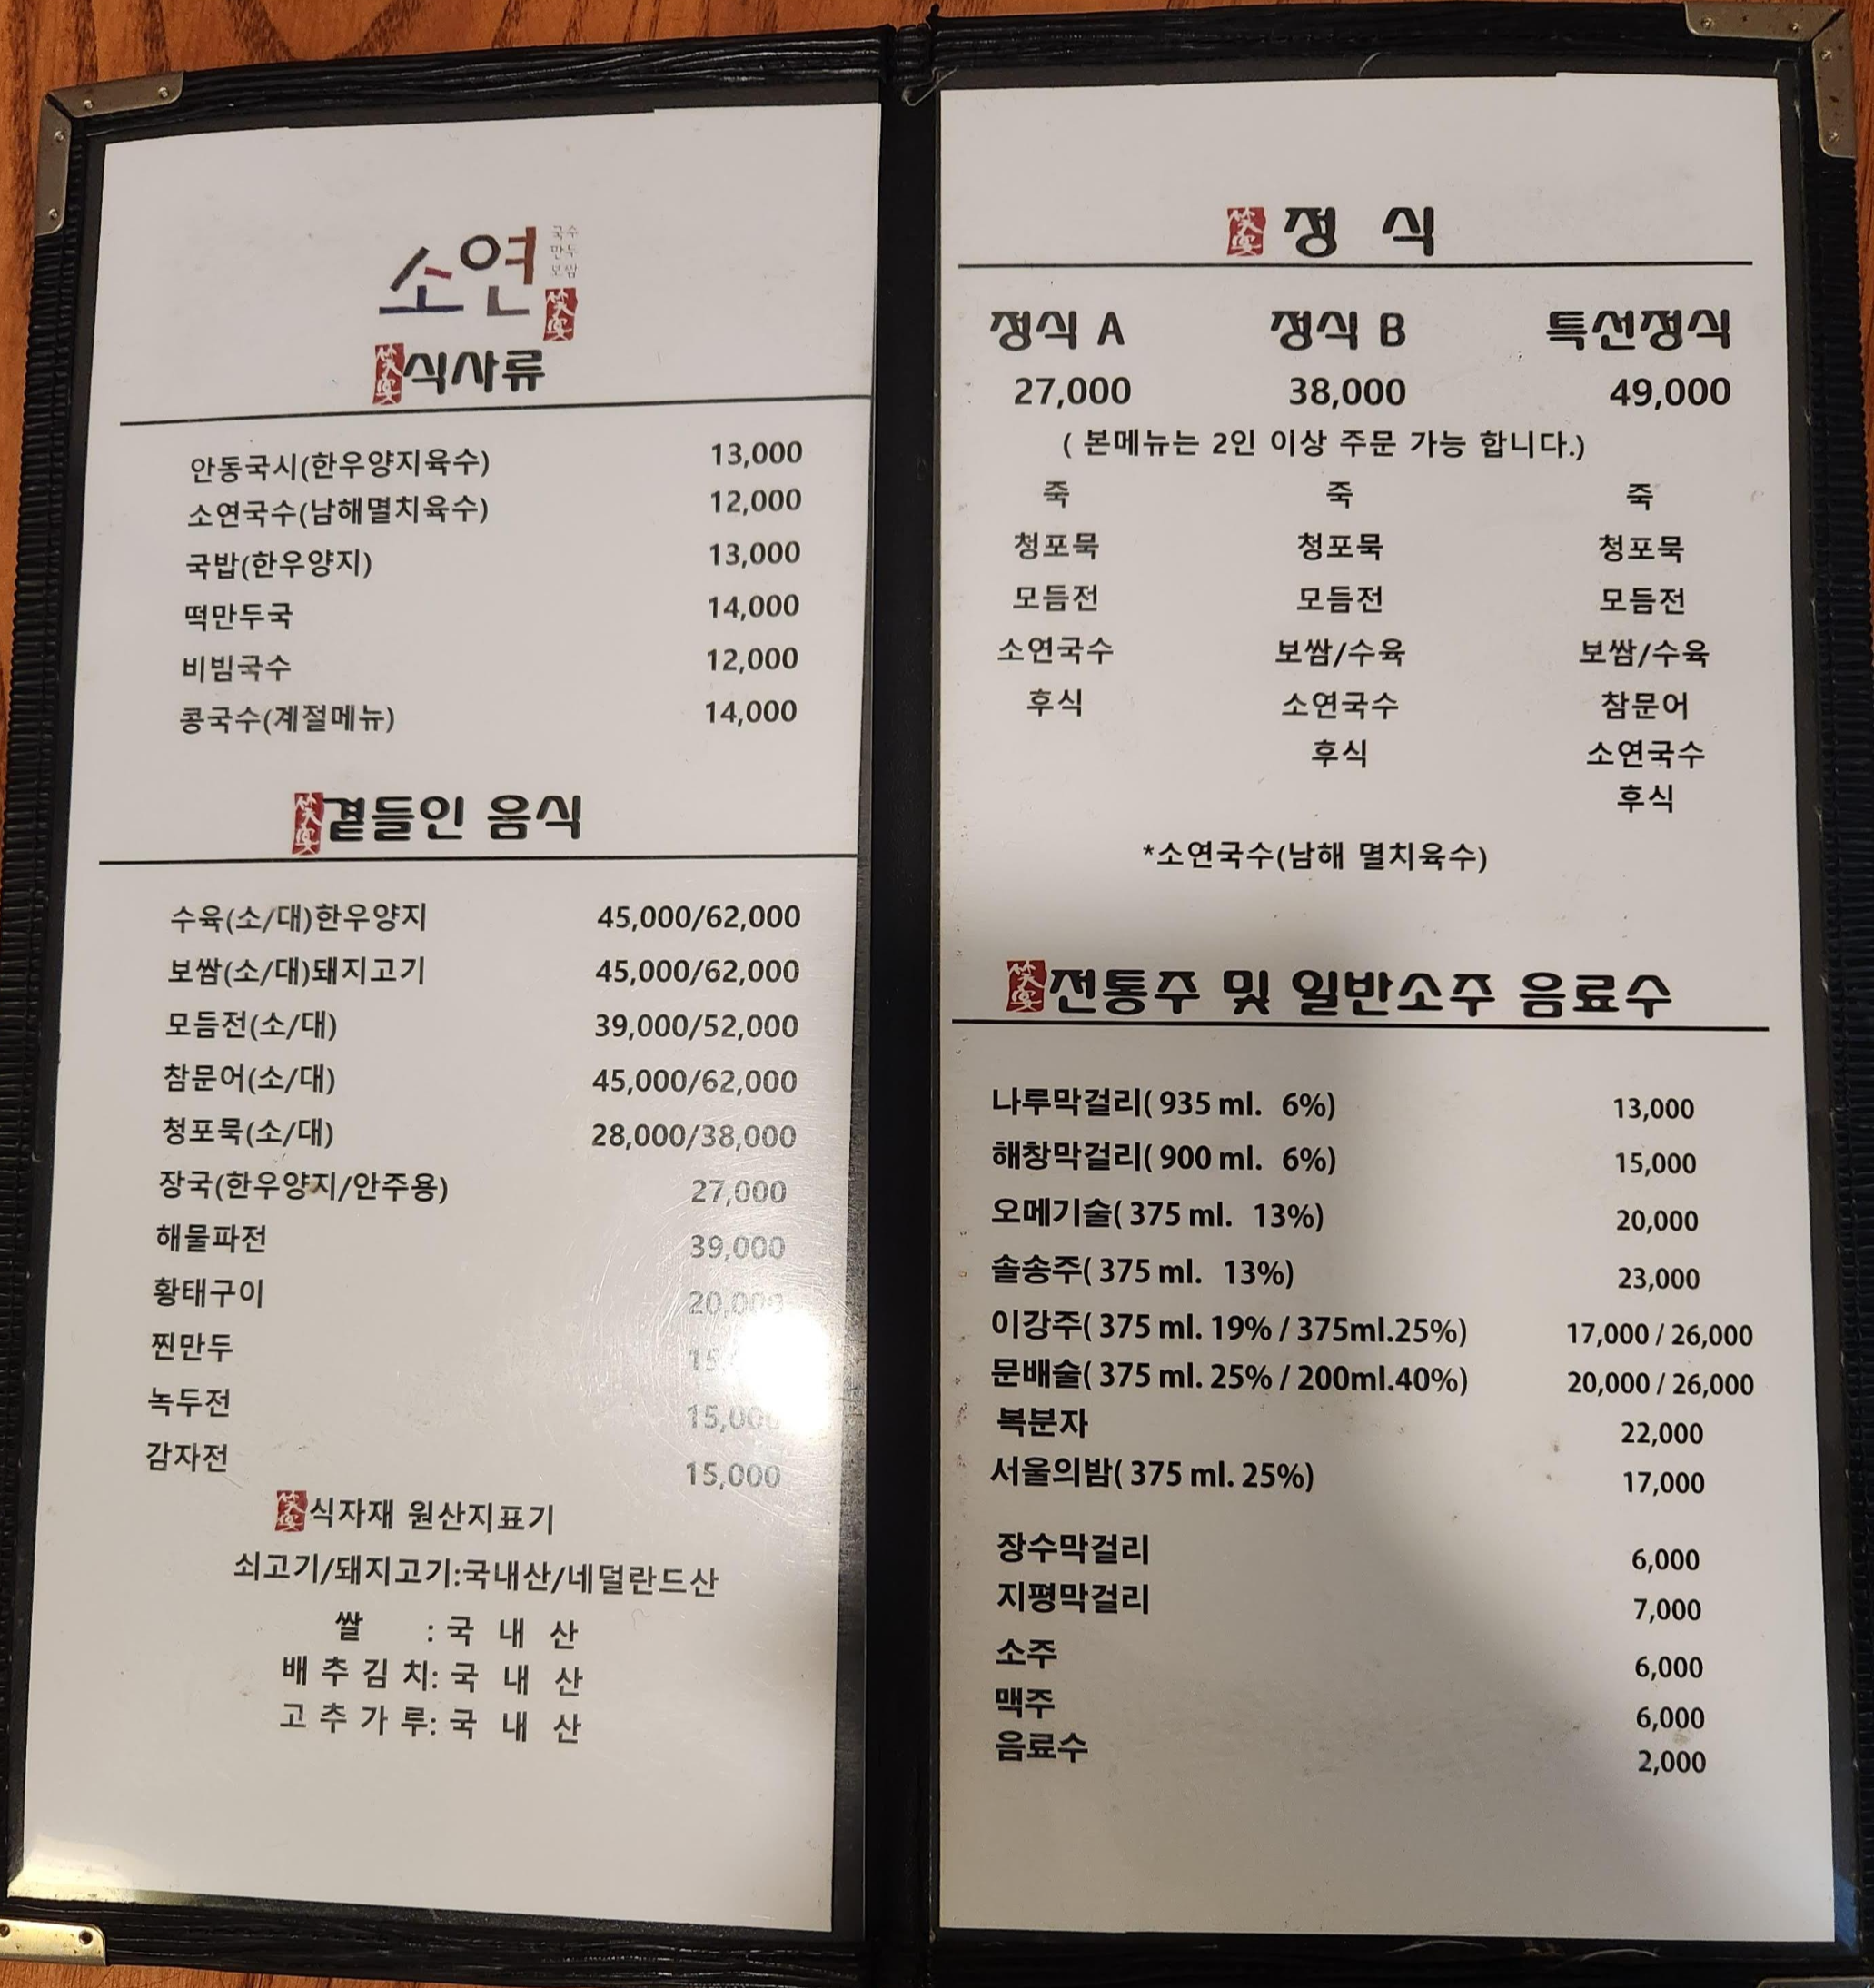 소연
국수
만두
보쌈
笑宴
笑宴 식사류
안동국시(한우양지육수) 13,000
소연국수(남해멸치육수) 12,000
국밥(한우양지) 13,000
떡만두국 14,000
비빔국수 12,000
콩국수(계절메뉴) 14,000
笑宴 곁들인 음식
수육(소/대)한우양지 45,000/62,000
보쌈(소/대)돼지고기 45,000/62,000
모듬전(소/대) 39,000/52,000
참문어(소/대) 45,000/62,000
청포묵(소/대) 28,000/38,000
장국(한우양지/안주용) 27,000
해물파전 39,000
황태구이 20,000
찐만두
녹두전 15,000
감자전 15,000
笑宴 식자재 원산지표기
쇠고기/돼지고기:국내산/네덜란드산
쌀 : 국 내 산
배 추 김 치: 국 내 산
고 추 가 루: 국 내 산
笑宴 정 식
정식 A 정식 B 특선정식
27,000 38,000 49,000
( 본메뉴는 2인 이상 주문 가능 합니다.)
죽 죽 죽
청포묵 청포묵 청포묵
모듬전 모듬전 모듬전
소연국수 보쌈/수육 보쌈/수육
후식 소연국수 참문어
후식 소연국수
후식
*소연국수(남해 멸치육수)
笑宴 전통주 및 일반소주 음료수
나루막걸리( 935 ml. 6%) 13,000
해창막걸리( 900 ml. 6%) 15,000
오메기술( 375 ml. 13%) 20,000
솔송주( 375 ml. 13%) 23,000
이강주( 375 ml. 19% / 375ml.25%) 17,000 / 26,000
문배술( 375 ml. 25% / 200ml.40%) 20,000 / 26,000
복분자 22,000
서울의밤( 375 ml. 25%) 17,000
장수막걸리 6,000
지평막걸리 7,000
소주 6,000
맥주 6,000
음료수 2,000